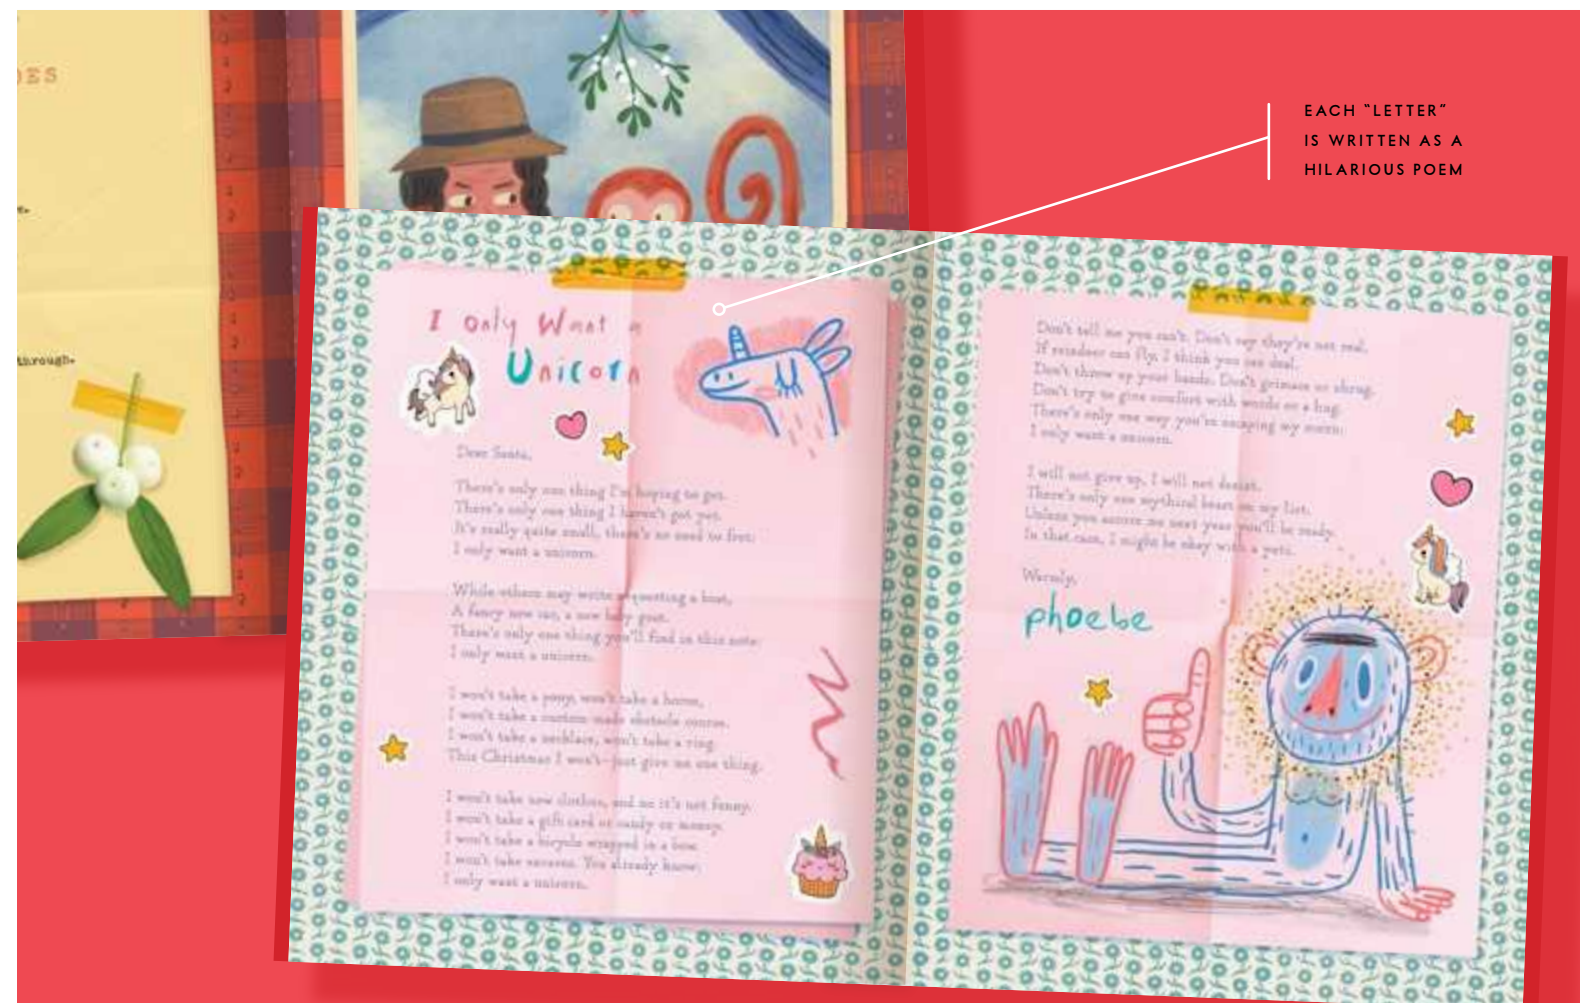 DES
through.
EACH "LETTER"
IS WRITTEN AS A
HILARIOUS POEM
I Only Want a
Unicorn
Dear Santa,
There's only one thing I'm hoping to get.
There's only one thing I haven't got yet.
It's really quite small, there's no need to fret:
I only want a unicorn.
While others may write requesting a boat,
A fancy new car, a new baby goat.
There's only one thing you'll find in this note:
I only want a unicorn.
I won't take a pony, won't take a horse,
I won't take a custom-made obstacle course.
I won't take a necklace, won't take a ring.
This Christmas I won't—just give me one thing.
I won't take new clothes, and no it's not funny.
I won't take a gift card or candy or money.
I won't take a bicycle wrapped in a bow.
I won't take excuses. You already know:
I only want a unicorn.
Don't tell me you can't. Don't say they're not real.
If reindeer can fly, I think you can deal.
Don't throw up your hands. Don't grimace or shrug.
Don't try to give comfort with words or a hug.
There's only one way you're escaping my scorn:
I only want a unicorn.
I will not give up, I will not desist.
There's only one mythical beast on my list.
Unless you assure me next year you'll be ready.
In that case, I might be okay with a yeti.
Warmly,
phoebe